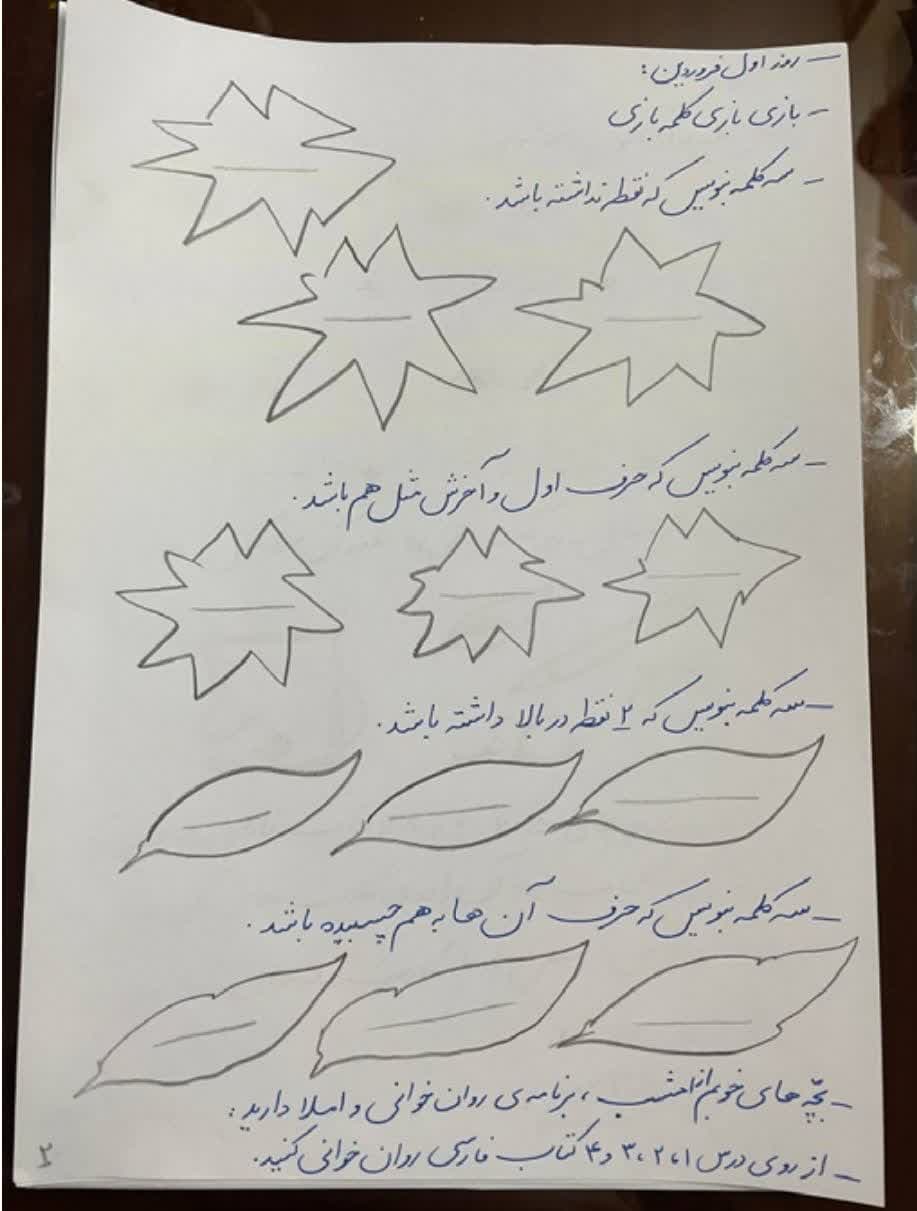 - روز اول فروردین:
- بازی بازی کلمه بازی
- سه کلمه بنویس که نقطه نداشته باشد.
- سه کلمه بنویس که حرف اول و آخرش مثل هم باشد.
- سه کلمه بنویس که ۲ نقطه در بالا داشته باشد.
- سه کلمه بنویس که حرف آن ها به هم چسبیده باشد.
- بچّه های خوبم از امشب، برنامه ی روان خوانی و املا دارید:
- از روی درس ۱، ۲، ۳ و ۴ کتاب فارسی روان خوانی کنید.
۲